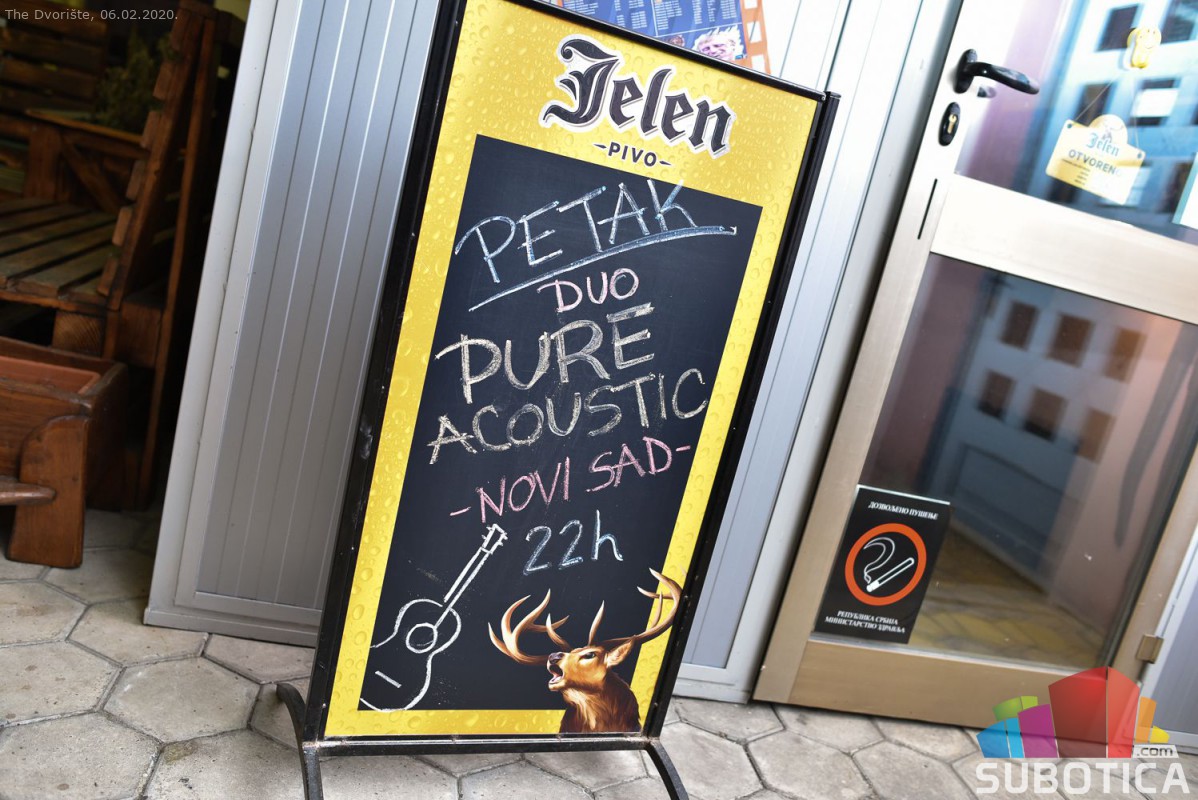 The Dvorište, 06.02.2020.
Jelen
-PIVO-
PETAK
DUO
PURE
ACOUSTIC
-NOVI SAD-
22h
Jelen
OTVORENO
ДОЗВОЉЕНО ПУШЕЊЕ
РЕПУБЛИКА СРБИЈА
МИНИСТАРСТВО ЗДРАВЉА
.com
SUBOTICA